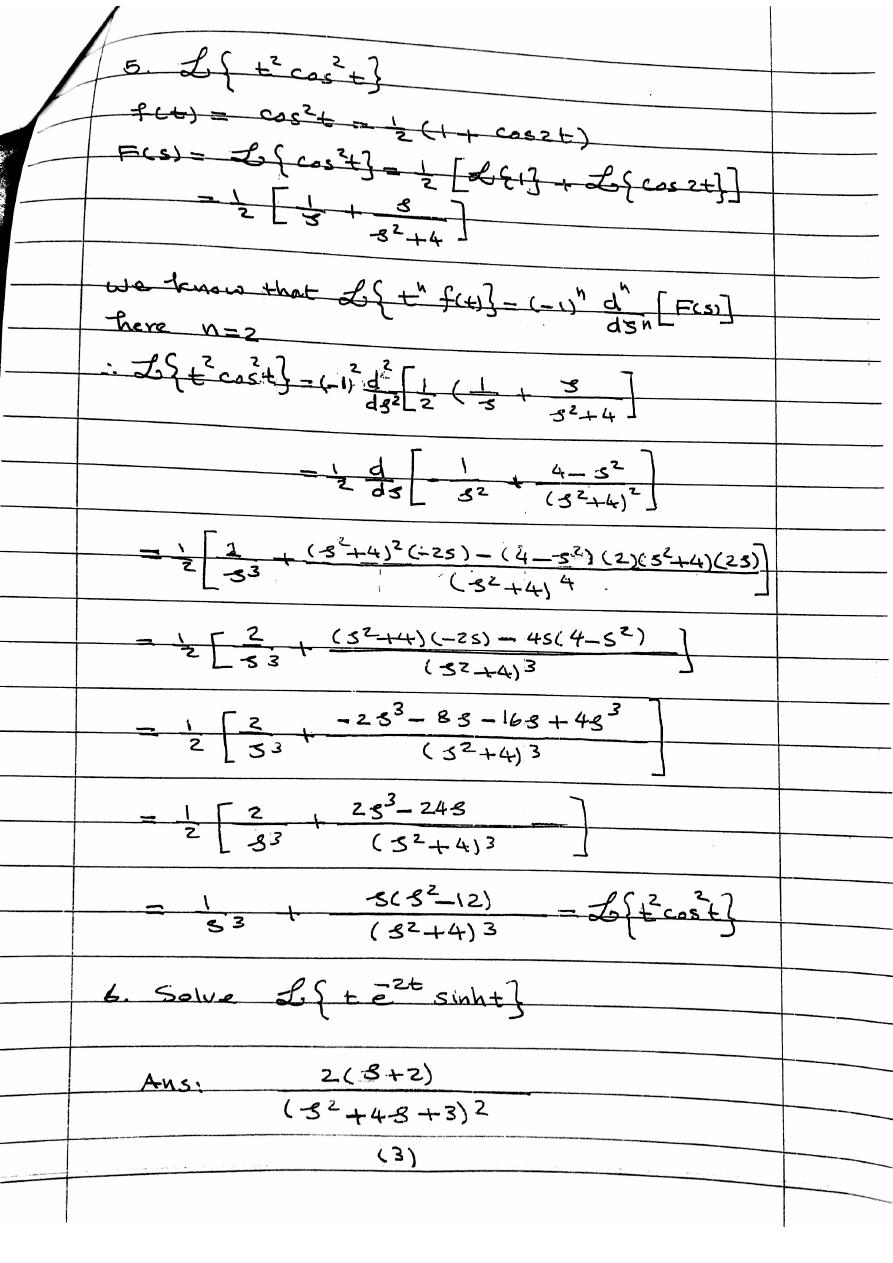 5. ℒ{ t² cos² t}
f(t) = cos²t = 1/2 (1 + cos2t)
F(s) = ℒ{cos²t} = 1/2 [ℒ{1} + ℒ{cos 2t}]
= 1/2 [ 1/s + s/(s²+4) ]
we know that ℒ{ tⁿ f(t)} = (-1)ⁿ dⁿ/dsⁿ [F(s)]
here n=2
∴ ℒ{t² cos²t} = (-1)² d²/ds² [ 1/2 ( 1/s + s/(s²+4) ]
= 1/2 d/ds [ -1/s² + (4-s²)/(s²+4)² ]
= 1/2 [ 2/s³ + ((s²+4)²(-2s) - (4-s²)(2)(s²+4)(2s))/(s²+4)⁴ ]
= 1/2 [ 2/s³ + ((s²+4)(-2s) - 4s(4-s²))/(s²+4)³ ]
= 1/2 [ 2/s³ + (-2s³ - 8s - 16s + 4s³)/(s²+4)³ ]
= 1/2 [ 2/s³ + (2s³ - 24s)/(s²+4)³ ]
= 1/s³ + s(s²-12)/(s²+4)³ = ℒ{t²cos²t}
6. Solve ℒ{ t e^-2t sinht}
Ans: 2(s+2)/(s²+4s+3)²
(3)